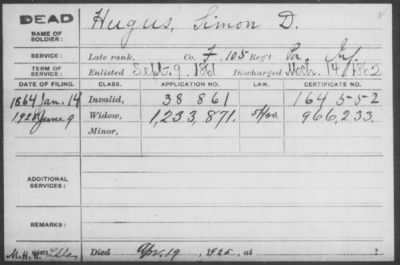 DEAD
NAME OF SOLDIER: Hugus, Simon D.
SERVICE: Late rank, Co. F, 105 Reg't Pa. Inf.
TERM OF SERVICE: Enlisted Sept. 9, 1861 Discharged Mch. 14, 1862
DATE OF FILING. CLASS. APPLICATION NO. LAW. CERTIFICATE NO.
1864 Jan. 14 Invalid, 38 861 164 552
June 9 Widow, 1,233,871. 966,233.
Minor,
ADDITIONAL SERVICES:
REMARKS:
Died Apr. 19, 1925, at